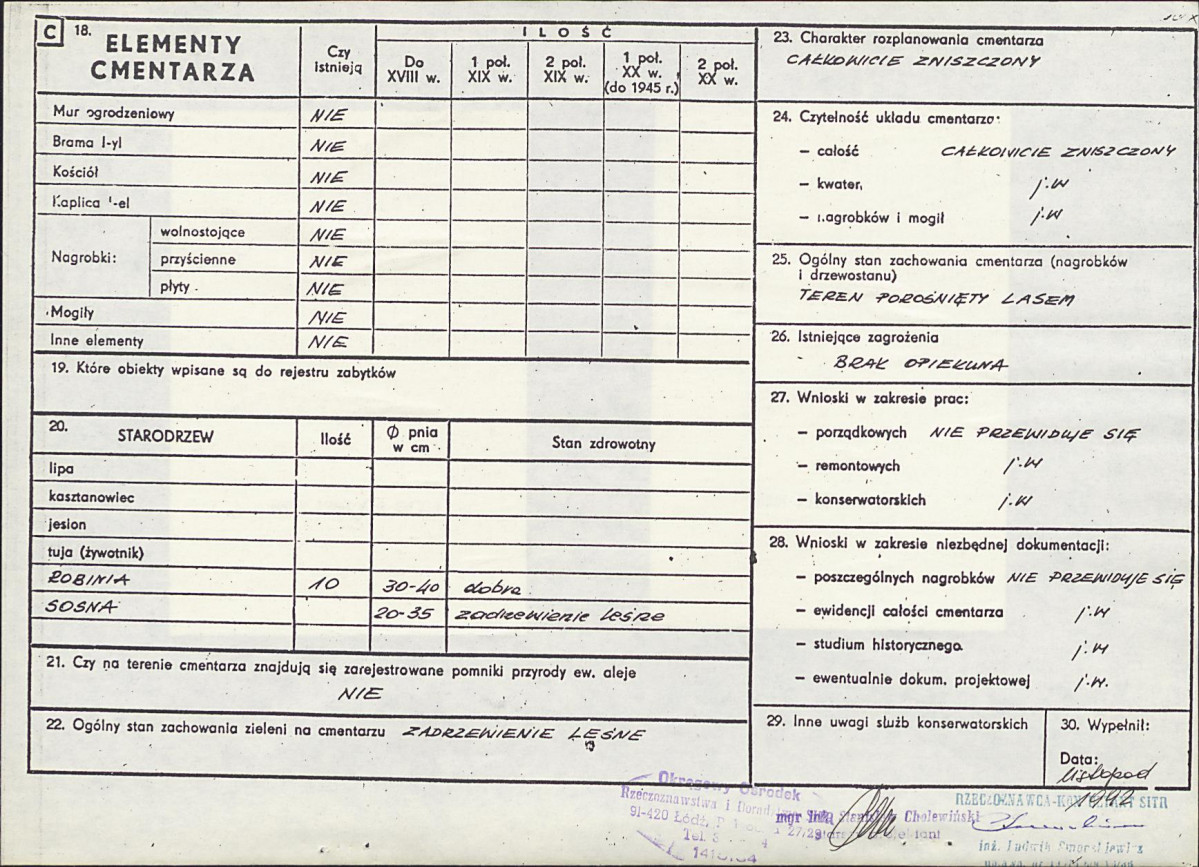 C 18. ELEMENTY CMENTARZA
Czy istnieją
ILOŚĆ
Do XVIII w.
1 poł. XIX w.
2 poł. XIX w.
1 poł. XX w. (do 1945 r.)
2 poł. XX w.
Mur ogrodzeniowy NIE
Brama I-yl NIE
Kościół NIE
Kaplica I-el NIE
Nagrobki:
wolnostojące NIE
przyścienne NIE
płyty NIE
Mogiły NIE
Inne elementy NIE
19. Które obiekty wpisane są do rejestru zabytków
20. STARODRZEW
Ilość
Ø pnia w cm
Stan zdrowotny
lipa
kasztanowiec
jesion
tuja (żywotnik)
ROBINIA 10 30-40 dobra
SOSNA 20-35 zadrzewienie leśne
21. Czy na terenie cmentarza znajdują się zarejestrowane pomniki przyrody ew. aleje
NIE
22. Ogólny stan zachowania zieleni na cmentarzu ZADRZEWIENIE LEŚNE
23. Charakter rozplanowania cmentarza
CAŁKOWICIE ZNISZCZONY
24. Czytelność układu cmentarza:
– całość CAŁKOWICIE ZNISZCZONY
– kwater, j.w
– nagrobków i mogił j.w
25. Ogólny stan zachowania cmentarza (nagrobków
i drzewostanu)
TEREN POROŚNIĘTY LASEM
26. Istniejące zagrożenia
BRAK OPIEKUNA
27. Wnioski w zakresie prac:
– porządkowych NIE PRZEWIDUJE SIĘ
– remontowych j.w
– konserwatorskich j.w
28. Wnioski w zakresie niezbędnej dokumentacji:
– poszczególnych nagrobków NIE PRZEWIDUJE SIĘ
– ewidencji całości cmentarza j.w
– studium historycznego j.w
– ewentualnie dokum. projektowej j.w.
29. Inne uwagi służb konserwatorskich
30. Wypełnił:
Data:
listopad
1992
Okręgowy Ośrodek
Rzeczoznawstwa i
91-420 Łódź,
Tel.
mgr inż. Cholewiński
RZECZOZNAWCA- SITR
inż. Ludwik